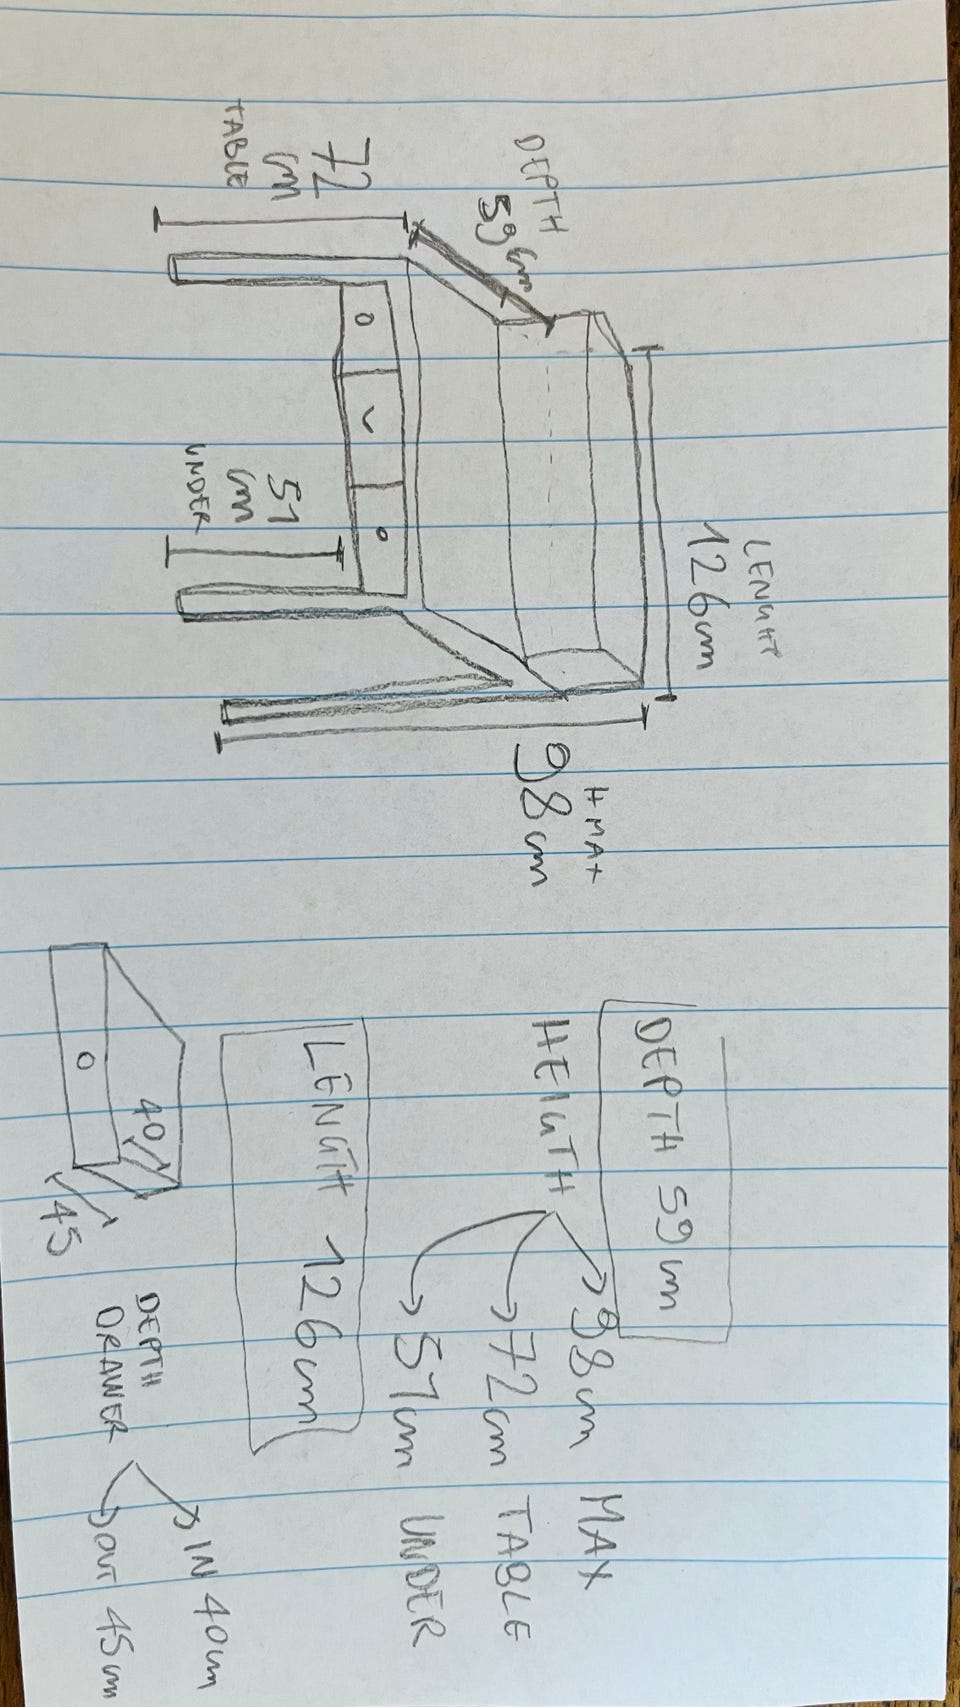 LENGHT
126cm
DEPTH
59cm
H MAX
98cm
72
cm
TABLE
51
cm
UNDER
DEPTH 59cm
HEIGTH
98cm MAX
72cm TABLE
51cm UNDER
LENGTH 126cm
40
45
DEPTH
DRAWER
IN 40cm
OUT 45cm